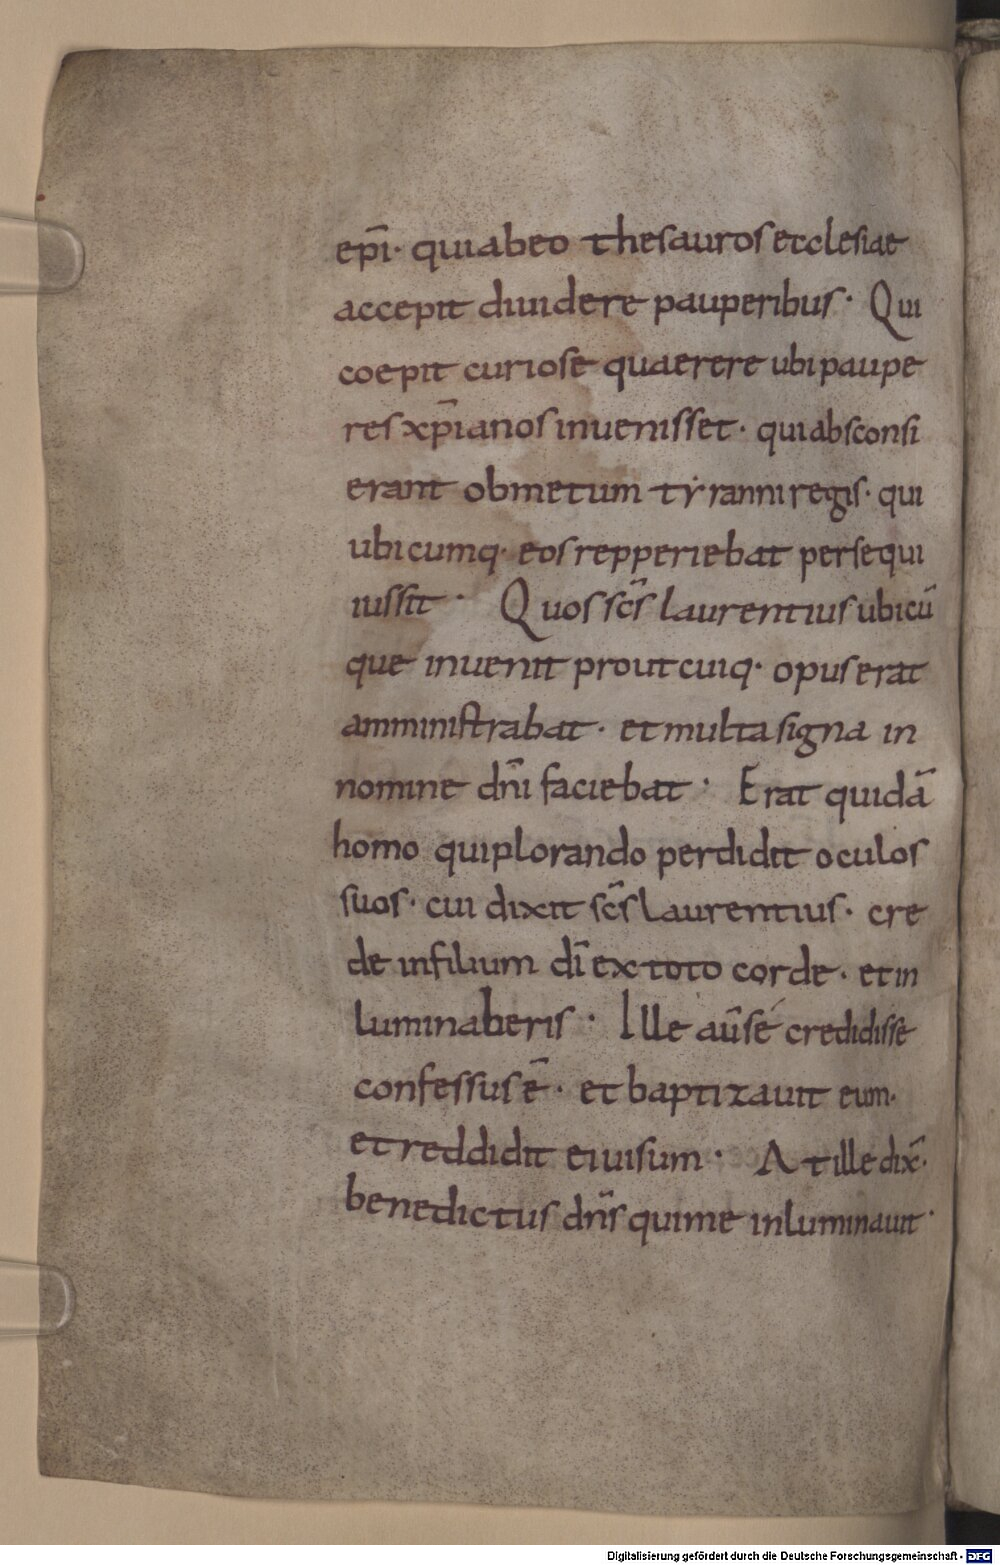 ep̄i· quiabeo thesauros ecclesiae
accepit diuidere pauperibus· Qui
coepit curiose quaerere ubi paupe
res xp̄ianos inuenisset· qui absconsi
erant ob metum tyranni regis· qui
ubicumq· eos repperiebat persequi
iussit· Quos sc̄s laurentius ubicū
que inuenit prout cuiq· opus erat
amministrabat· et multa signa in
nomine dn̄i faciebat· Erat quidā
homo qui plorando perdidit oculos
suos· cui dixit sc̄s Laurentius· cre
de in filium dī ex toto corde· et in
luminaberis· Ille aūsé credidisse
confessus ē· et baptizauit eum·
et reddidit ei uisum· At ille dix̄·
benedictus dn̄s qui me inluminauit·
Digitalisierung gefördert durch die Deutsche Forschungsgemeinschaft - DFG